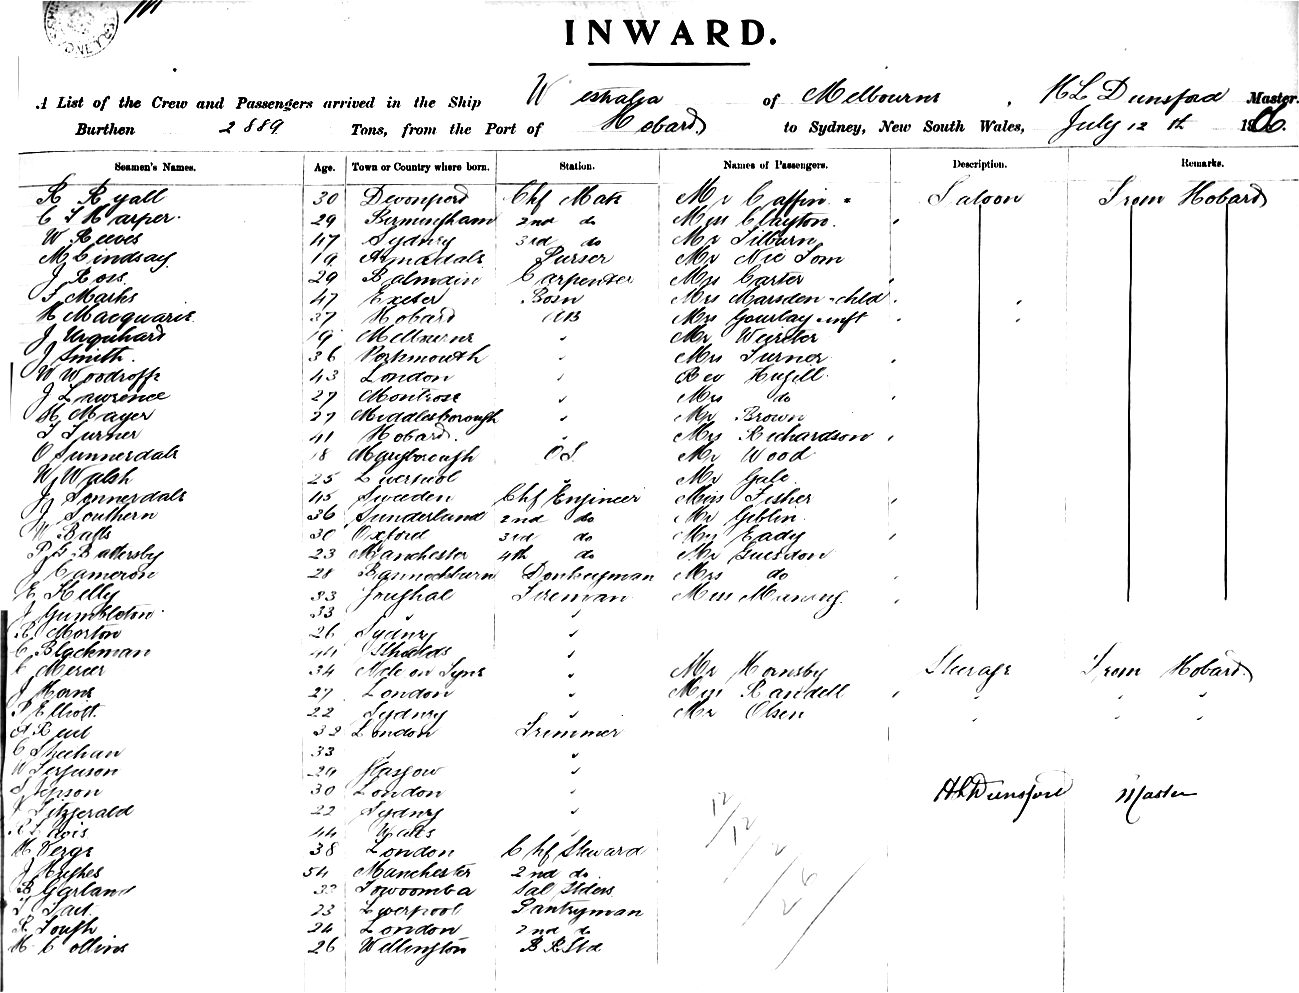 INWARD.
A List of the Crew and Passengers arrived in the Ship Westralia of Melbourne, H L Dunsford Master.
Burthen 2889 Tons, from the Port of Hobard to Sydney, New South Wales, July 12th 190
Seamen's Names. Age. Town or Country where born. Station. Names of Passengers. Description. Remarks.
R Ryall 30 Devonford Chf Mate Mr Caffin Saloon From Hobard
C T Harper 29 Birmingham 2nd do Miss Clayton
W Reeves 47 Sydney 3rd do Mr Tilburn
M Lindsay 19 Armadale Purser Mr Nic Tom
J Ross 29 Balmain Carpenter Mrs Carter
T Marks 47 Exeter Bosn Mrs Marsden - chld
H Macquarie 37 Hobard AB Mrs Gourlay - inft
J Urquhard 19 Melbourne " Mr
J Smith 36 Portsmouth " Mrs Turner
W Woodroffe 43 London " Rev Hugill
J Lawrence 27 Montrose " Mrs do
H Mayer 27 Middlesborough " Mr Brown
T Turner 41 Hobard " Mrs Richardson
O Sunnerdale 18 Maryborough OS Mr Wood
W Walsh 25 Liverpool " Mr Gale
J Sonnerdale 45 Sweden Chf Engineer Miss Fisher
J Southern 36 Sunderland 2nd do Mr Giblin
W Batts 30 Oxford 3rd do Mrs Eady
P G Battersby 23 Manchester 4th do Mr Guesdon
J Cameron 28 Bannockburn Donkeyman Mrs do
E Kelly 33 Youghal Fireman Miss
J Gumbleton 33 " "
R Morton 26 Sydney "
C Blackman 44 "
C Mercer 34 Ncle on Tyne " Mr Hornsby Steerage From Hobard
J Horne 27 London " Miss Randell " " "
P Elliott 22 Sydney " Mr Olsen " " "
A 32 London Trimmer
C Sheehan 33 " "
W Ferguson 29 Glasgow "
S Jepson 30 London " H L Dunsford Master
Fitzgerald 22 Sydney "
44 Wales "
H Verge 38 London Chf Steward
J Hughes 54 Manchester 2nd do
B Garland 33 Towoomba Sal Stders
T Tait 23 Liverpool Pantryman
R Tough 24 London 2nd do
M Collins 26 Wellington B R Std